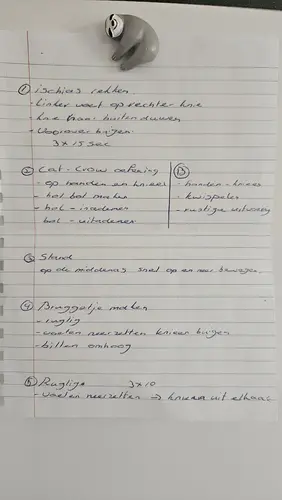 ① ischias rekken
- Linker voet op rechter knie
- knie naar buiten duwen
- Voorover buigen
3 x 15 sec
② Cat-Cow oefening
- op handen en knieën
- hol bol maken
- hol - inademen
bol - uitademen
B
- handen-knieen
- kwispelen
- rustige uitvoering
③ Stand
op de middenas snel op en neer bewegen.
④ Bruggetje maken
- ruglig
- voeten neerzetten knieen buigen
- billen omhoog
⑤ Ruglig 3 x 10
- Voeten neerzetten => knieen uit elkaar